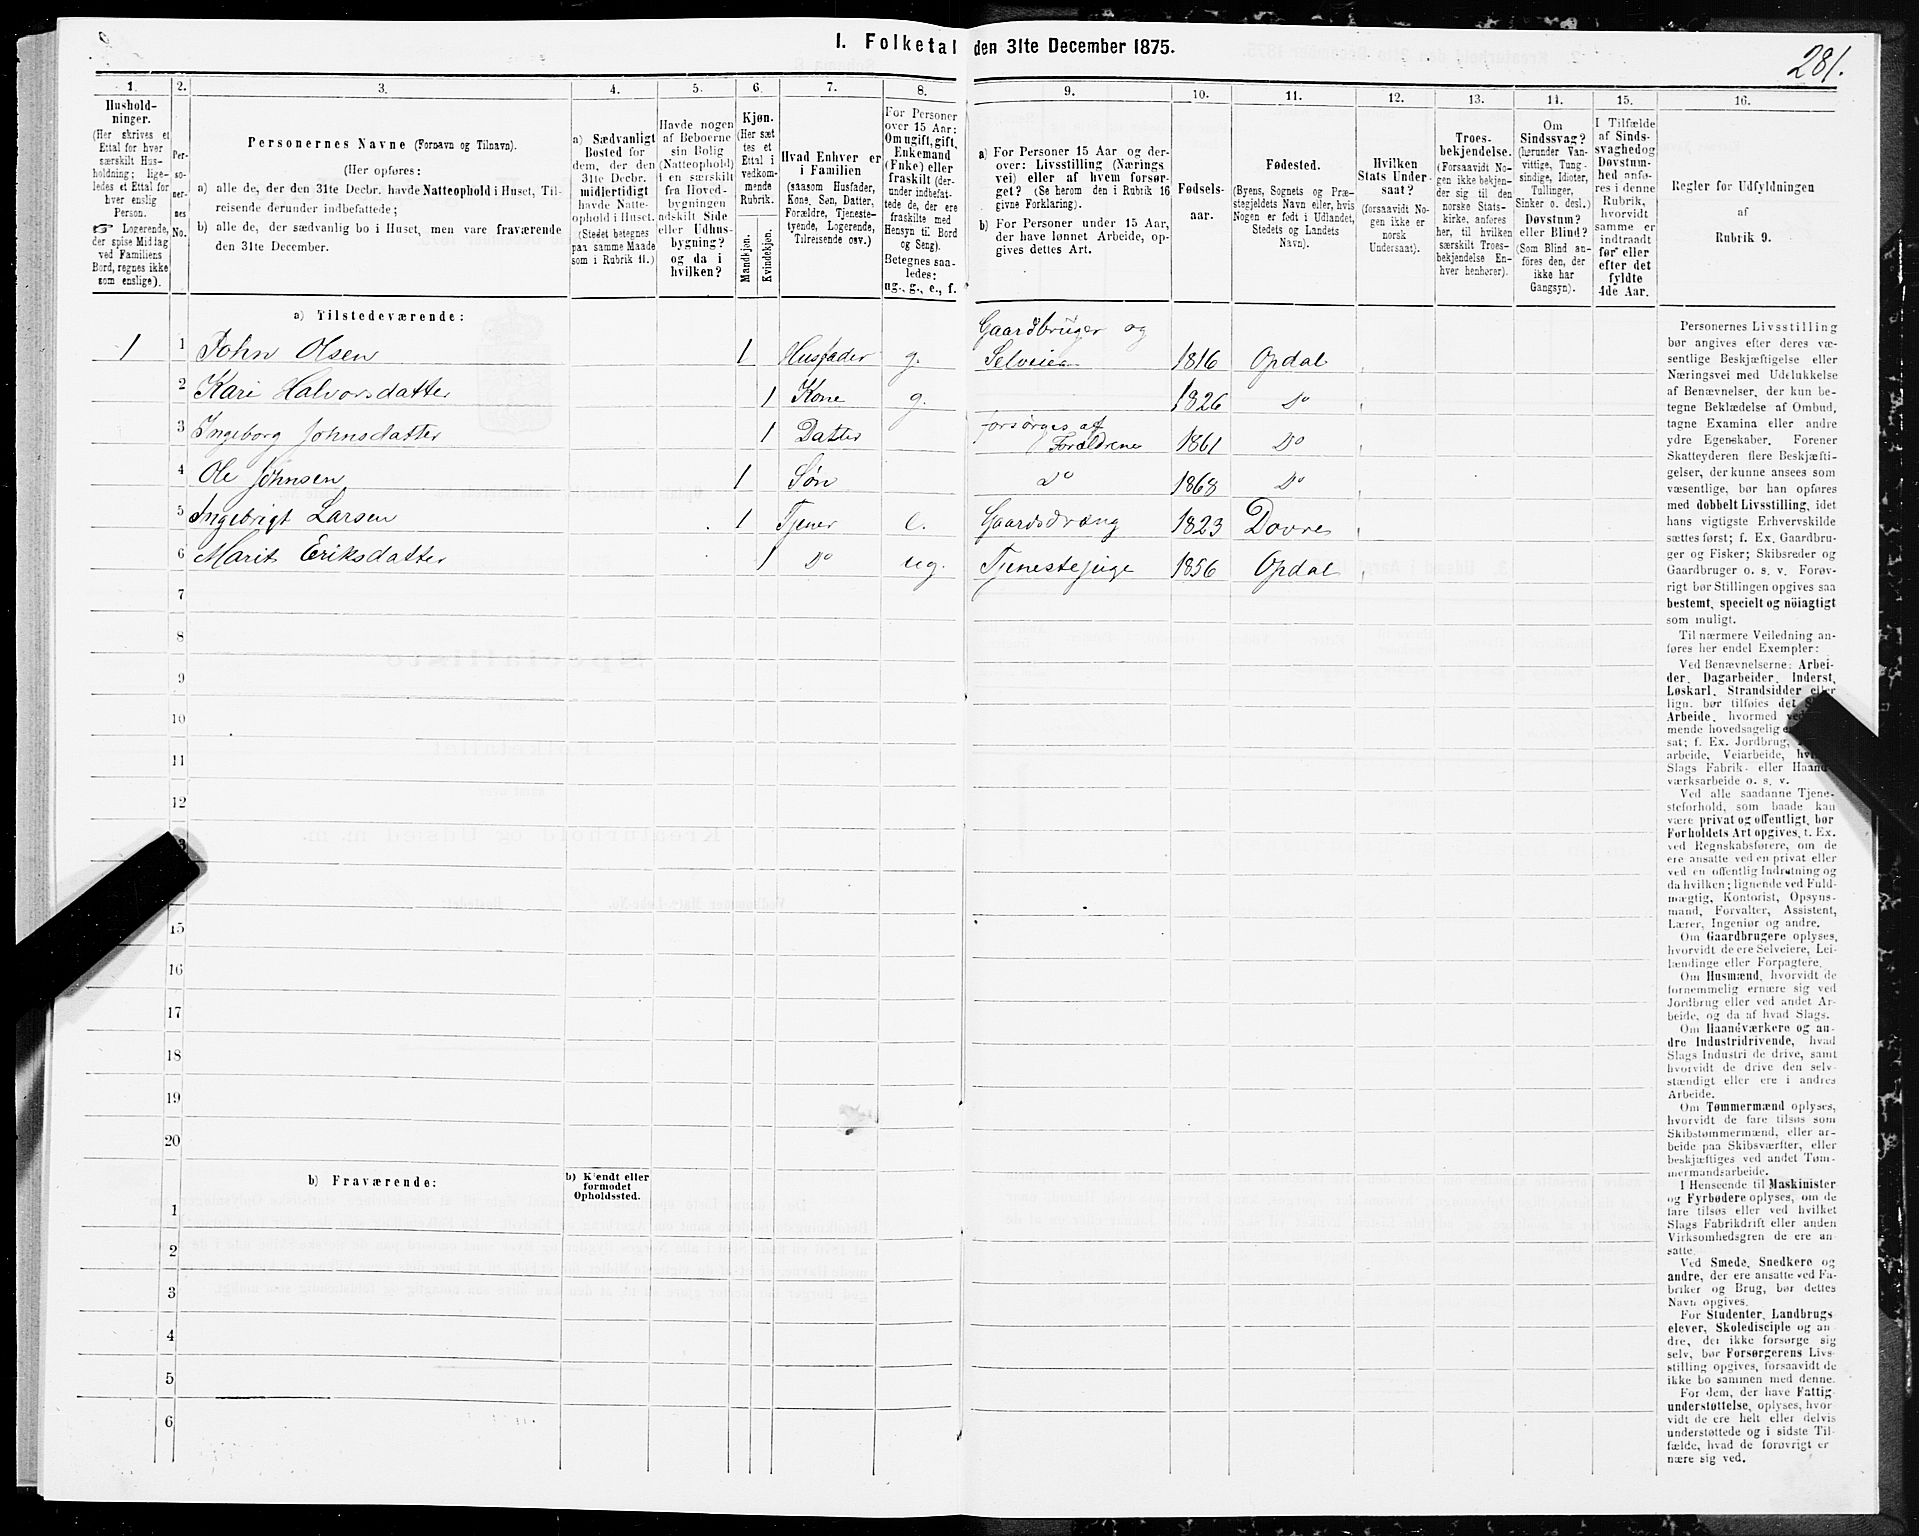 I. Folketal den 31te December 1875.
281.
1.
2.
3.
4.
5.
6.
7.
8.
9.
10.
11.
12.
13.
14.
15.
16.
Hushold-
ninger.
(Her skrives et
Ettal for hver
særskilt Hus-
holdning; lige-
ledes et Ettal for
hver enslig
Person.
☞ Logerende,
der spise Middag
ved Familiens
Bord, regnes ikke
som enslige).
Per-
so-
ner-
nes
No.
Personernes Navne (Fornavn og Tilnavn).
(Her opføres:
a) alle de, der den 31te Decbr. havde Natteophold i Huset, Til-
reisende derunder indbefattede;
b) alle de, der sædvanlig bo i Huset, men vare fraværende
den 31te December.
a) Sædvanligt
Bosted for
dem, der den
31te Decbr.
midlertidigt
havde Natte-
ophold i Huset.
(Stedet betegnes
paa samme Maade
som i Rubrik 11.)
Havde nogen
af Beboerne
sin Bolig
(Natteophold)
i en særskilt
fra Hoved-
bygningen
adskilt Side
eller Udhus-
bygning?
og da i
hvilken?
Kjøn.
(Her sæt
tes et
Ettal i
vedkom-
mende
Rubrik.
Mandkjøn.
Kvindekjøn.
Hvad Enhver er
i Familien
(saasom Husfader,
Kone, Søn, Datter,
Forældre, Tjeneste-
tyende, Logerende,
Tilreisende osv.)
For Personer
over 15 Aar:
Om ugift, gift,
Enkemand
(Enke) eller
fraskilt (der-
under indbefat-
tede de, der ere
fraskilte med
Hensyn til Bord
og Seng).
Betegnes saa-
ledes:
ug., g., e., f.
a) For Personer 15 Aar og der-
over: Livsstilling (Nærings
vei) eller af hvem forsør-
get? (Se herom den i Rubrik 16
givne Forklaring).
b) For Personer under 15 Aar,
der have lønnet Arbeide, op-
gives dettes Art.
Fødsels-
aar.
Fødested.
(Byens, Sognets og Præ-
stegjeldets Navn eller, hvis
Nogen er født i Udlandet,
Stedets og Landets
Navn).
Hvilken
Stats Under-
saat?
(forsaavidt No-
gen ikke er
norsk
Undersaat).
Troes-
bekjendelse.
(Forsaavidt No-
gen ikke bekjen-
der sig til den
norske Stats-
kirke, anføres
her, til hvilken
særskilt Troes-
bekjendelse En-
hver henhører).
Om
Sindssvag?
(herunder Van-
vittige, Tung-
sindige, Idioter,
Tullinger,
Sinker o. desl.)
Døvstum?
eller Blind?
(Som Blind an-
føres den, der
ikke har
Gangsyn).
I Tilfælde
af Sinds-
svaghed og
Døvstum-
hed anfø-
res i denne
Rubrik,
hvorvidt
samme er
indtraadt
før eller
efter det
fyldte
4de Aar.
Regler for Udfyldningen
af
Rubrik 9.
a) Tilstedeværende:
1 1 John Olsen 1 Husfader g. Gaardbruger og
Selveier 1816 Opdal
2 Kari Halvorsdatter 1 Kone g. 1826 Do
3 Ingeborg Johnsdatter 1 Datter forsørges af
Forældrene 1861 Do
4 Ole Johnsen 1 Søn Do 1868 Do
5 Ingebrigt Larsen 1 Tjener e. Gaardsdræng 1823 Dovre
6 Marit Eriksdatter 1 Do ug. Tjenestepige 1856 Opdal
7
8
9
10
11
12
15
16
17
18
19
20
b) Fraværende:
b) Kjendt eller
formodet
Opholdssted.
1
2
3
4
5
6
Personernes Livsstilling
bør angives efter deres væ-
sentlige Beskjæftigelse eller
Næringsvei med Udelukkelse
af Benævnelser, der kun be-
tegne Beklædelse af Ombud,
tagne Examina eller andre
ydre Egenskaber. Forener
Skatteyderen flere Beskjæfti-
gelser, der kunne ansees som
væsentlige, bør han opføres
med dobbelt Livsstilling, idet
hans vigtigste Erhvervskilde
sættes først; f. Ex. Gaardbru-
ger og Fisker; Skibsreder og
Gaardbruger o. s. v. Forøv-
rigt bør Stillingen opgives saa
bestemt, specielt og nöiagtigt
som muligt.
Til nærmere Veiledning an-
føres her endel Exempler:
Ved Benævnelserne: Arbei-
der, Dagarbeider, Inderst,
Løskarl, Strandsidder eller
lign. bør tilføies det
Arbeide, hvormed
mende hovedsagelig
sat; f. Ex. Jordbrug,
arbeide, Veiarbeide,
Slags Fabrik- eller Haand-
værksarbeide o. s. v.
Ved alle saadanne Tjene-
steforhold, som baade kan
være privat og offentligt, bør
Forholdets Art opgives, t. Ex.
ved Regnskabsførere, om de
ere ansatte ved en privat eller
ved en offentlig Indretning og
da hvilken; lignende ved Fuld-
mægtig, Kontorist, Opsyns-
mand, Forvalter, Assistent,
Lærer, Ingeniør og andre.
Om Gaardbrugere oplyses,
hvorvidt de ere Selveiere, Lei-
lændinge eller Forpagtere.
Om Husmænd, hvorvidt de
fornemmelig ernære sig ved
Jordbrug eller ved andet Ar-
beide, og da af hvad Slags.
Om Haandværkere og an-
dre Industridrivende, hvad
Slags Industri de drive, samt
hvorvidt de drive den selv-
stændigt eller ere i andres
Arbeide.
Om Tømmermænd oplyses,
hvorvidt de fare tilsøs som
Skibstømmermænd, eller ar-
beide paa Skibsværfter, eller
beskjæftiges ved andet Tøm-
mermandsarbeide.
I Henseende til Maskinister
og Fyrbødere oplyses, om de
fare tilsøs eller ved hvilket
Slags Fabrikdrift eller anden
Virksomhedsgren de ere an-
satte.
Ved Smede, Snedkere og
andre, der ere ansatte ved Fa-
briker og Brug, bør dettes
Navn opgives.
For Studenter, Landbrugs-
elever, Skoledisciple og an-
dre, der ikke forsørge sig
selv, bør Forsørgerens Livs-
stilling opgives, forsaavidt de
ikke bo sammen med denne.
For dem, der have Fattig-
understøttelse, oplyses, hvor-
vidt de ere helt eller delvis
understøttede og i sidste Til-
fælde, hvad de forøvrigt er
nære sig ved.